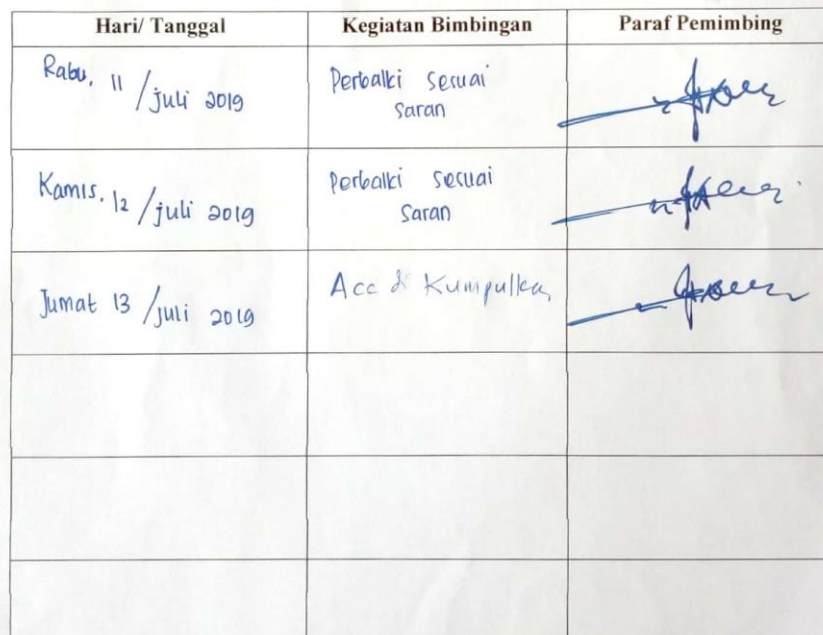 Hari/ Tanggal Kegiatan Bimbingan Paraf Pemimbing
Rabu, 11 /juli 2019 Perbaiki sesuai
saran
Kamis. 12 /juli 2019 Perbaiki sesuai
saran
Jumat 13 /juli 2019 Acc di Kumpulkan